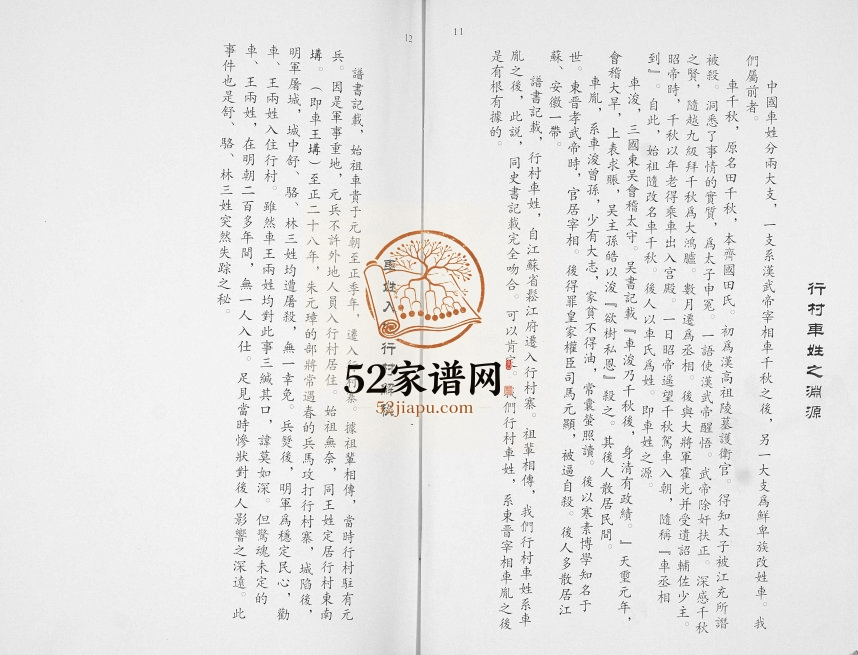 行村車姓之淵源
中國車姓分兩大支，一支系漢武帝宰相車千秋之後，另一大支爲鮮卑族改姓車。我
們屬前者。
車千秋，原名田千秋，本齊國田氏。初爲漢高祖陵墓護衛官。得知太子被江充所譖
被殺。洞悉了事情的實質，爲太子申冤。一語使漢武帝醒悟。武帝除奸扶正。深感千秋
之賢，隨越九級拜千秋爲大鴻臚。數月遷爲丞相。後與大將軍霍光并受遺詔輔佐少主。
昭帝時，千秋以年老得乘車出入宮殿。一日昭帝遥望千秋駕車入朝，隨稱『車丞相
到』。自此，始祖隨改名車千秋。後人以車氏爲姓。即車姓之源。
車浚，三國東吴會稽太守。吴書記載『車浚乃千秋後，身清有政績。』天璽元年，
會稽大旱，上表求賑，吴主孫皓以浚『欲樹私恩』殺之。其後人散居民間。
車胤，系車浚曾孫，少有大志，家貧不得油，常囊螢照讀。後以寒素博學知名于
世。東晋孝武帝時，官居宰相。後得罪皇家權臣司馬元顯，被逼自殺。後人多散居江
蘇、安徽一帶。
譜書記載，行村車姓，自江蘇省鬆江府遷入行村寨。祖輩相傳，我們行村車姓系車
胤之後，此說，同史書記載完全吻合。可以肯定。我們行村車姓，系東晋宰相車胤之後
是有根有據的。
11
12
車姓入 行村解秘
譜書記載，始祖車貴于元朝至正季年，遷入行村寨。據祖輩相傳，當時行村駐有元
兵。因是軍事重地，元兵不許外地人員入行村居住。始祖無奈，同王姓定居行村東南
塂。（即車王塂）至正二十八年，朱元璋的部將常遇春的兵馬攻打行村寨，城陷後，
明軍屠城，城中舒、駱、林三姓均遭屠殺，無一幸免。兵燹後，明軍爲穩定民心，勸
車、王兩姓入住行村。雖然車王兩姓均對此事三緘其口，諱莫如深。但驚魂未定的
車、王兩姓，在明朝二百多年間，無一人入仕。足見當時慘狀對後人影響之深遠。此
事件也是舒、駱、林三姓突然失踪之秘。
52家谱网
52jiapu.com